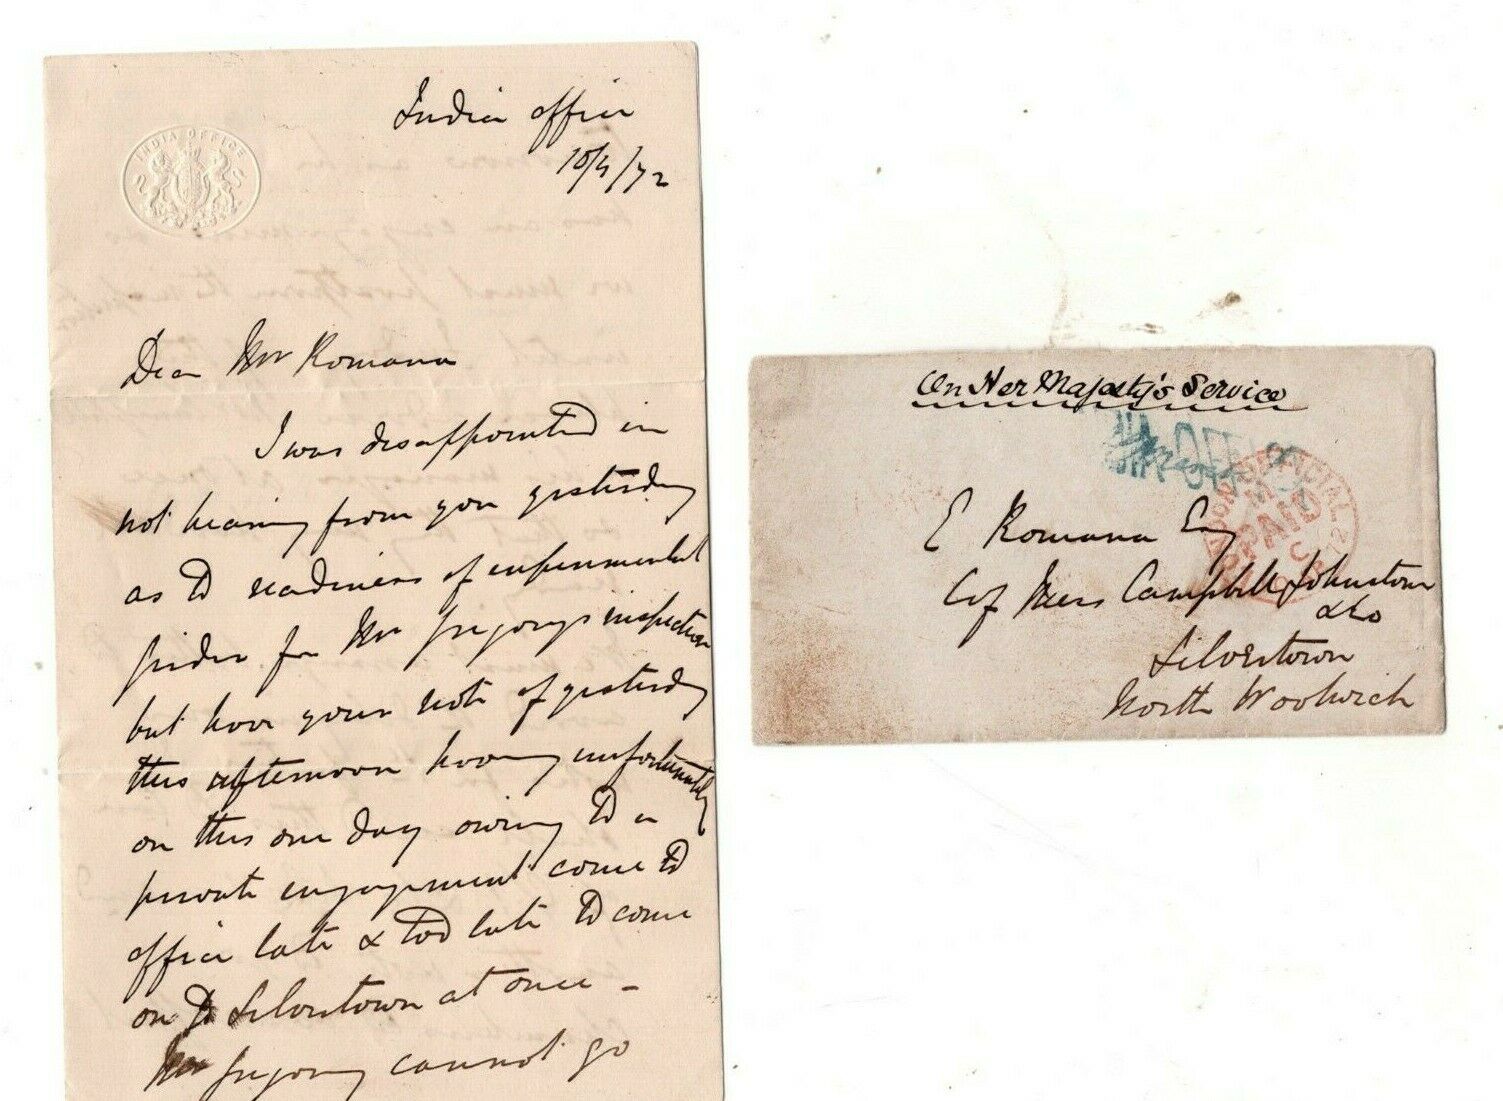 INDIA OFFICE
India Office
10/4/72
Dear Mr Romana
I was disappointed in
not hearing from you yesterday
as to readiness of experimental
girder for Mr Gregory's inspection
but have your note of yesterday
this afternoon having unfortunately
on this one day owing to a
private engagement come to
office late & too late to come
on to Silvertown at once –
Mr Gregory cannot go
On Her Majesty's Service
OFFICIAL
LONDON OFFICIAL
PAID
E Romana Esq
C/o Messrs Campbell Johnstone
& Co
Silvertown
North Woolwich